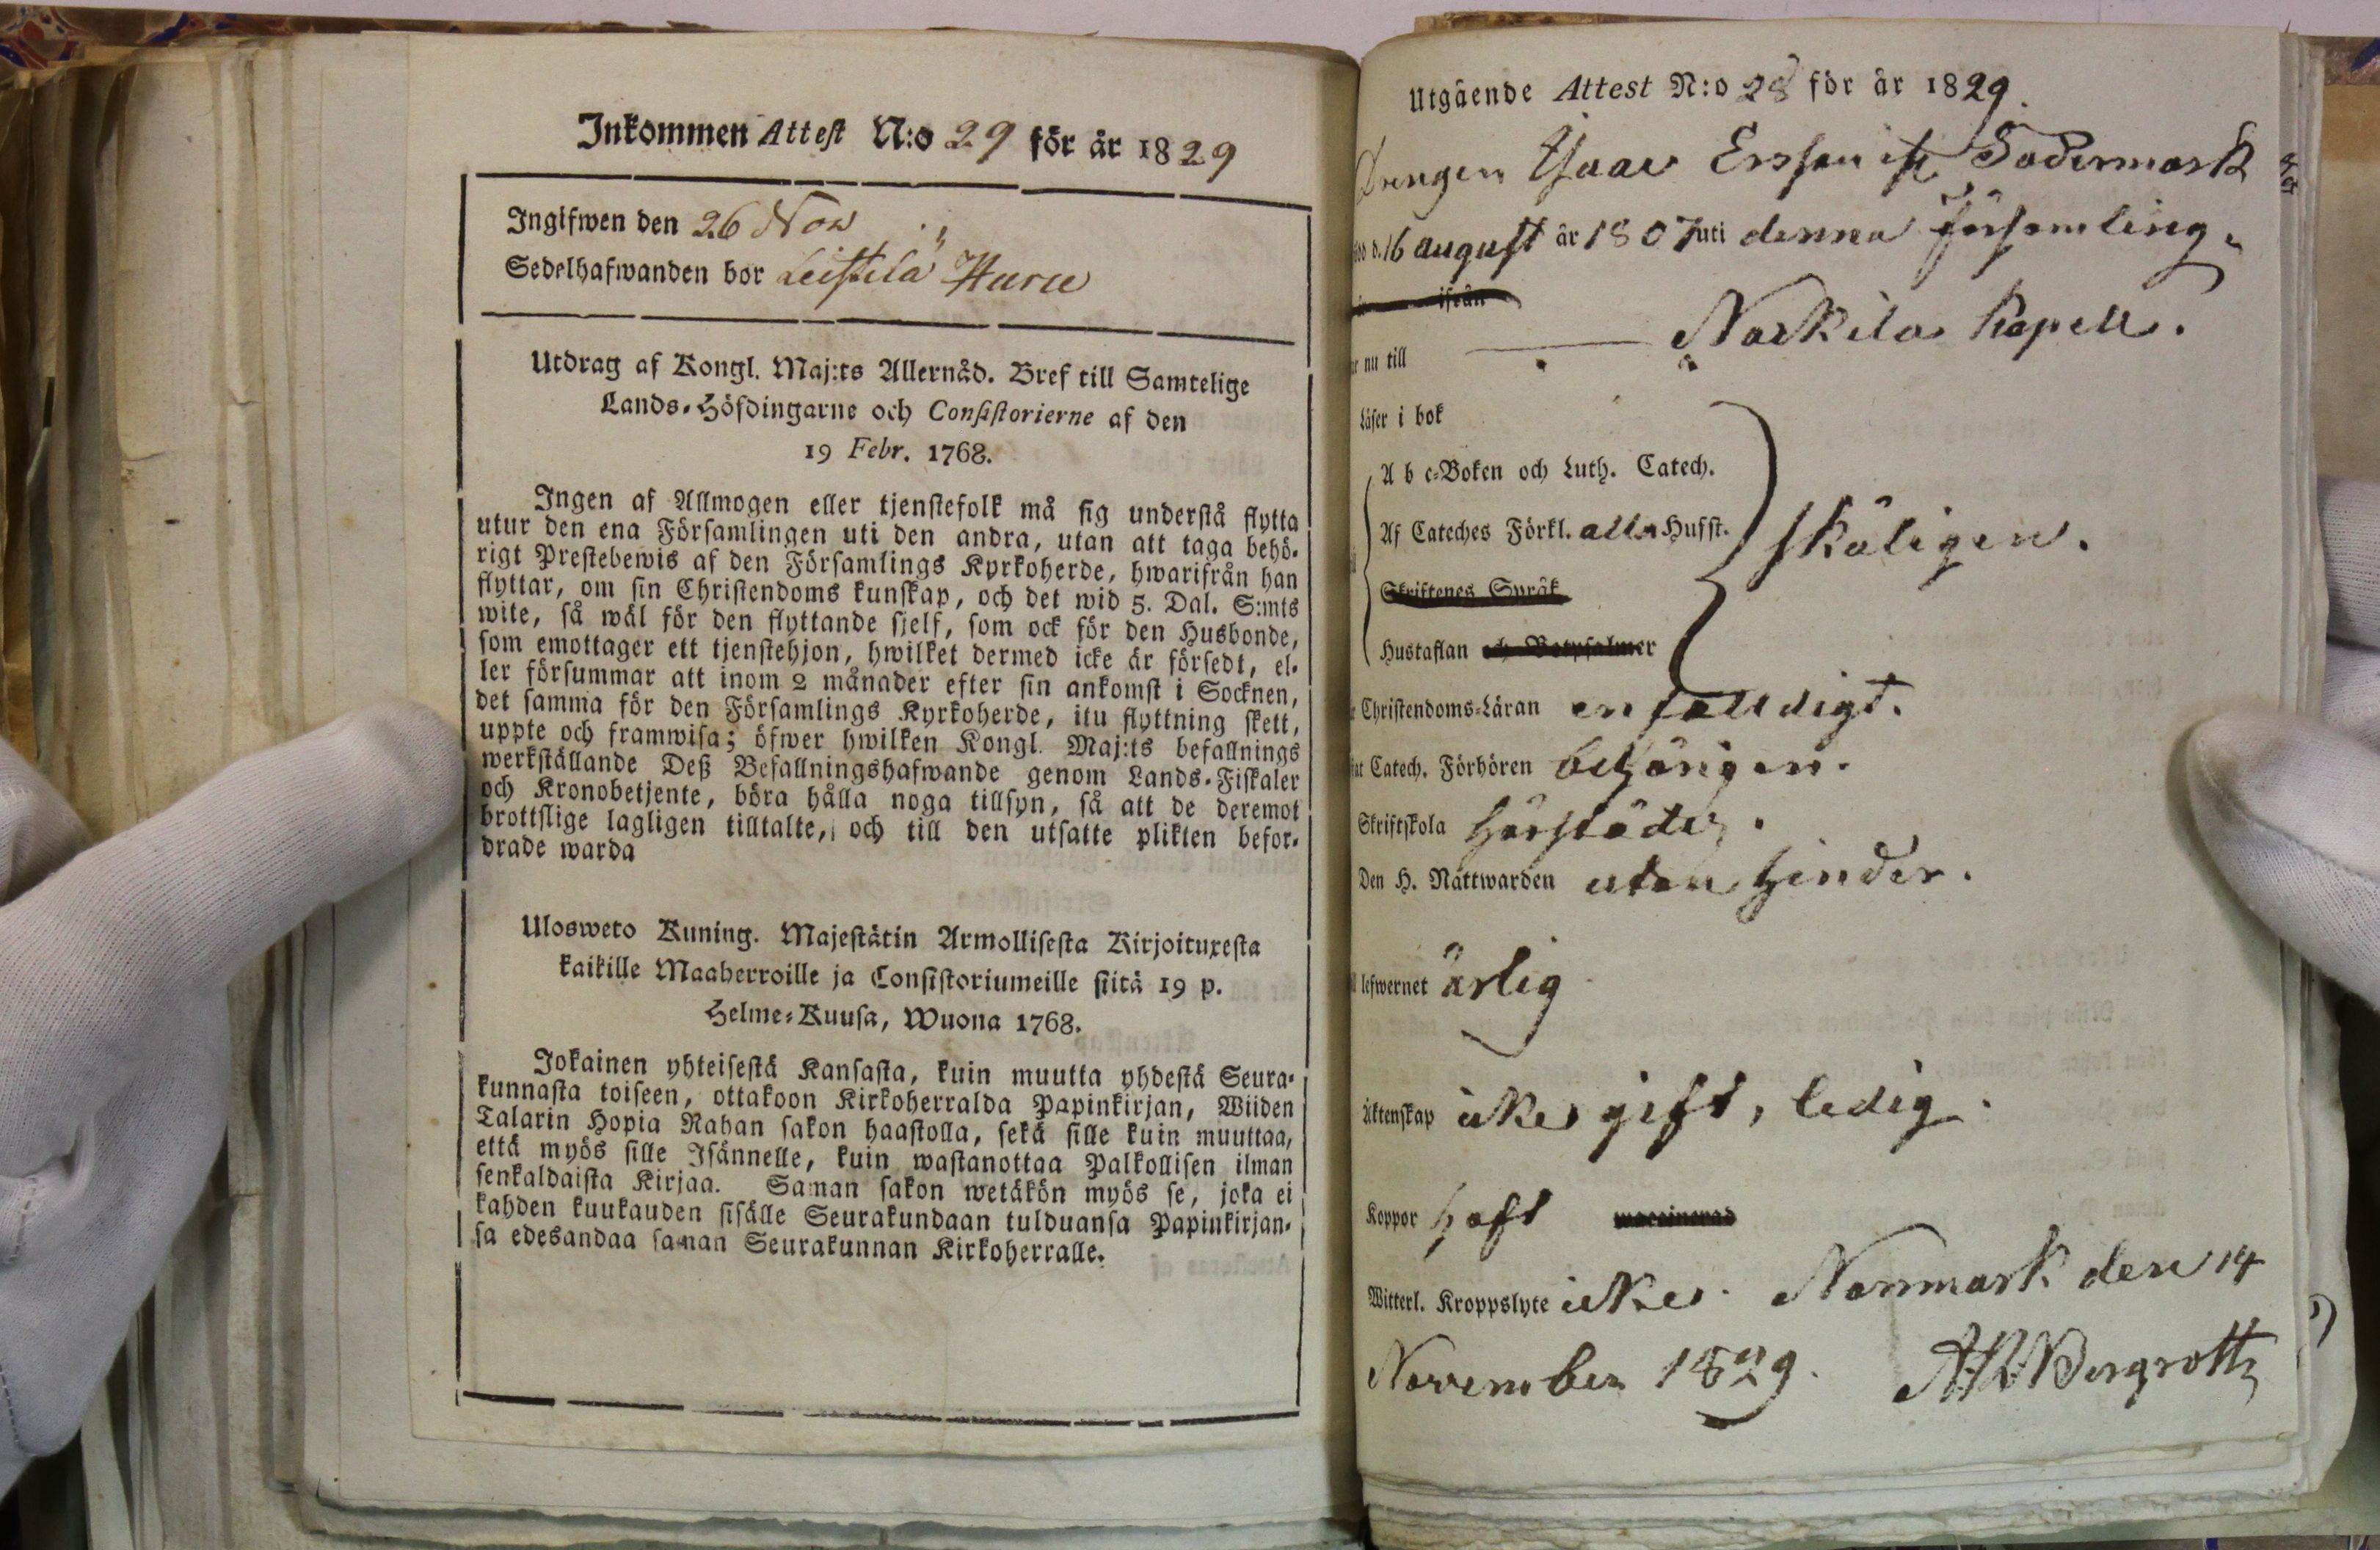 Inkommen Attest N:o 29 för år 1829
Ingifwen den 26 Nov
Sedelhafwanden bor Leistilä Huru
Utdrag af Kongl. Maj:ts Allernåd. Bref till Samtelige
Lands-Höfdingarne och Consistorierne af den
19 Febr. 1768.
Ingen af Allmogen eller tjenstefolk må sig understå flytta
utur den ena Församlingen uti den andra, utan att taga behö-
rigt Prestebewis af den Församlings Kyrkoherde, hwarifrån han
flyttar, om sin Christendoms kunskap, och det wid 5. Dal. S:mts
wite, så wäl för den flyttande sjelf, som ock för den Husbonde,
som emottager ett tjenstehjon, hwilket dermed icke är försedt, el-
ler försummar att inom 2 månader efter sin ankomst i Socknen,
det samma för den Församlings Kyrkoherde, itu flyttning skett,
uppte och framwisa; öfwer hwilken Kongl. Maj:ts befallnings
werkställande Deß Befallningshafwande genom Lands-Fiskaler
och Kronobetjente, böra hålla noga tillsyn, så att de deremot
brottslige lagligen tilltalte, och till den utsatte plikten befor-
drade warda
Ulosweto Kuning. Majestätin Armollisesta Kirjoituxesta
kaikille Maaherroille ja Consistoriumeille siitä 19 p.
Helme-Kuusa, Wuona 1768.
Jokainen yhteisestä Kansasta, kuin muutta yhdestä Seura-
kunnasta toiseen, ottakoon Kirkoherralda Papinkirjan, Wiiden
Talarin Hopia Rahan sakon haastolla, sekä sille kuin muuttaa,
että myös sille Isännelle, kuin wastanottaa Palkollisen ilman
senkaldaista Kirjaa. Saman sakon wetäkön myös se, joka ei
kahden kuukauden sisälle Seurakundaan tulduansa Papinkirjan-
sa edesandaa saman Seurakunnan Kirkoherralle.
Utgående Attest N:o 28 för år 1829.
Drengen Isaac Ersson ifr Södermark
d. 16 august år 1807 uti denna församling.
ifrån
nu till Nakkila Kapell.
Läser i bok
A b c-Boken och Luth. Catech.
Af Cateches Förkl. alla Husst.
skäligen.
Skriftenes Språk
Hustaflan och Botpsalmer
Christendoms-Läran enfalldigt.
Catech. Förhören behörigen.
Skriftskola härstädes.
Den H. Nattwarden utan hinder.
lefwernet ärlig
Äktenskap icke gift, ledig.
Koppor haft vaccinerad
Witterl. Kroppslyte icke. Norrmark den 14
November 1829. Bergroth